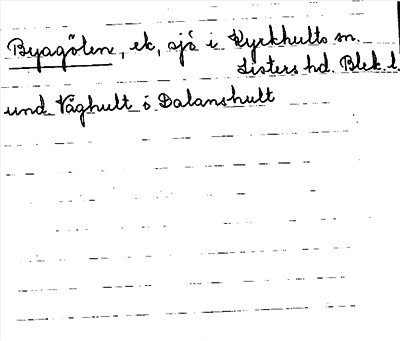 Byagölen, ek, sjö i Kyrkhults sn.
Listers hd. Blek. l.
und. Våghult o Dalanshult